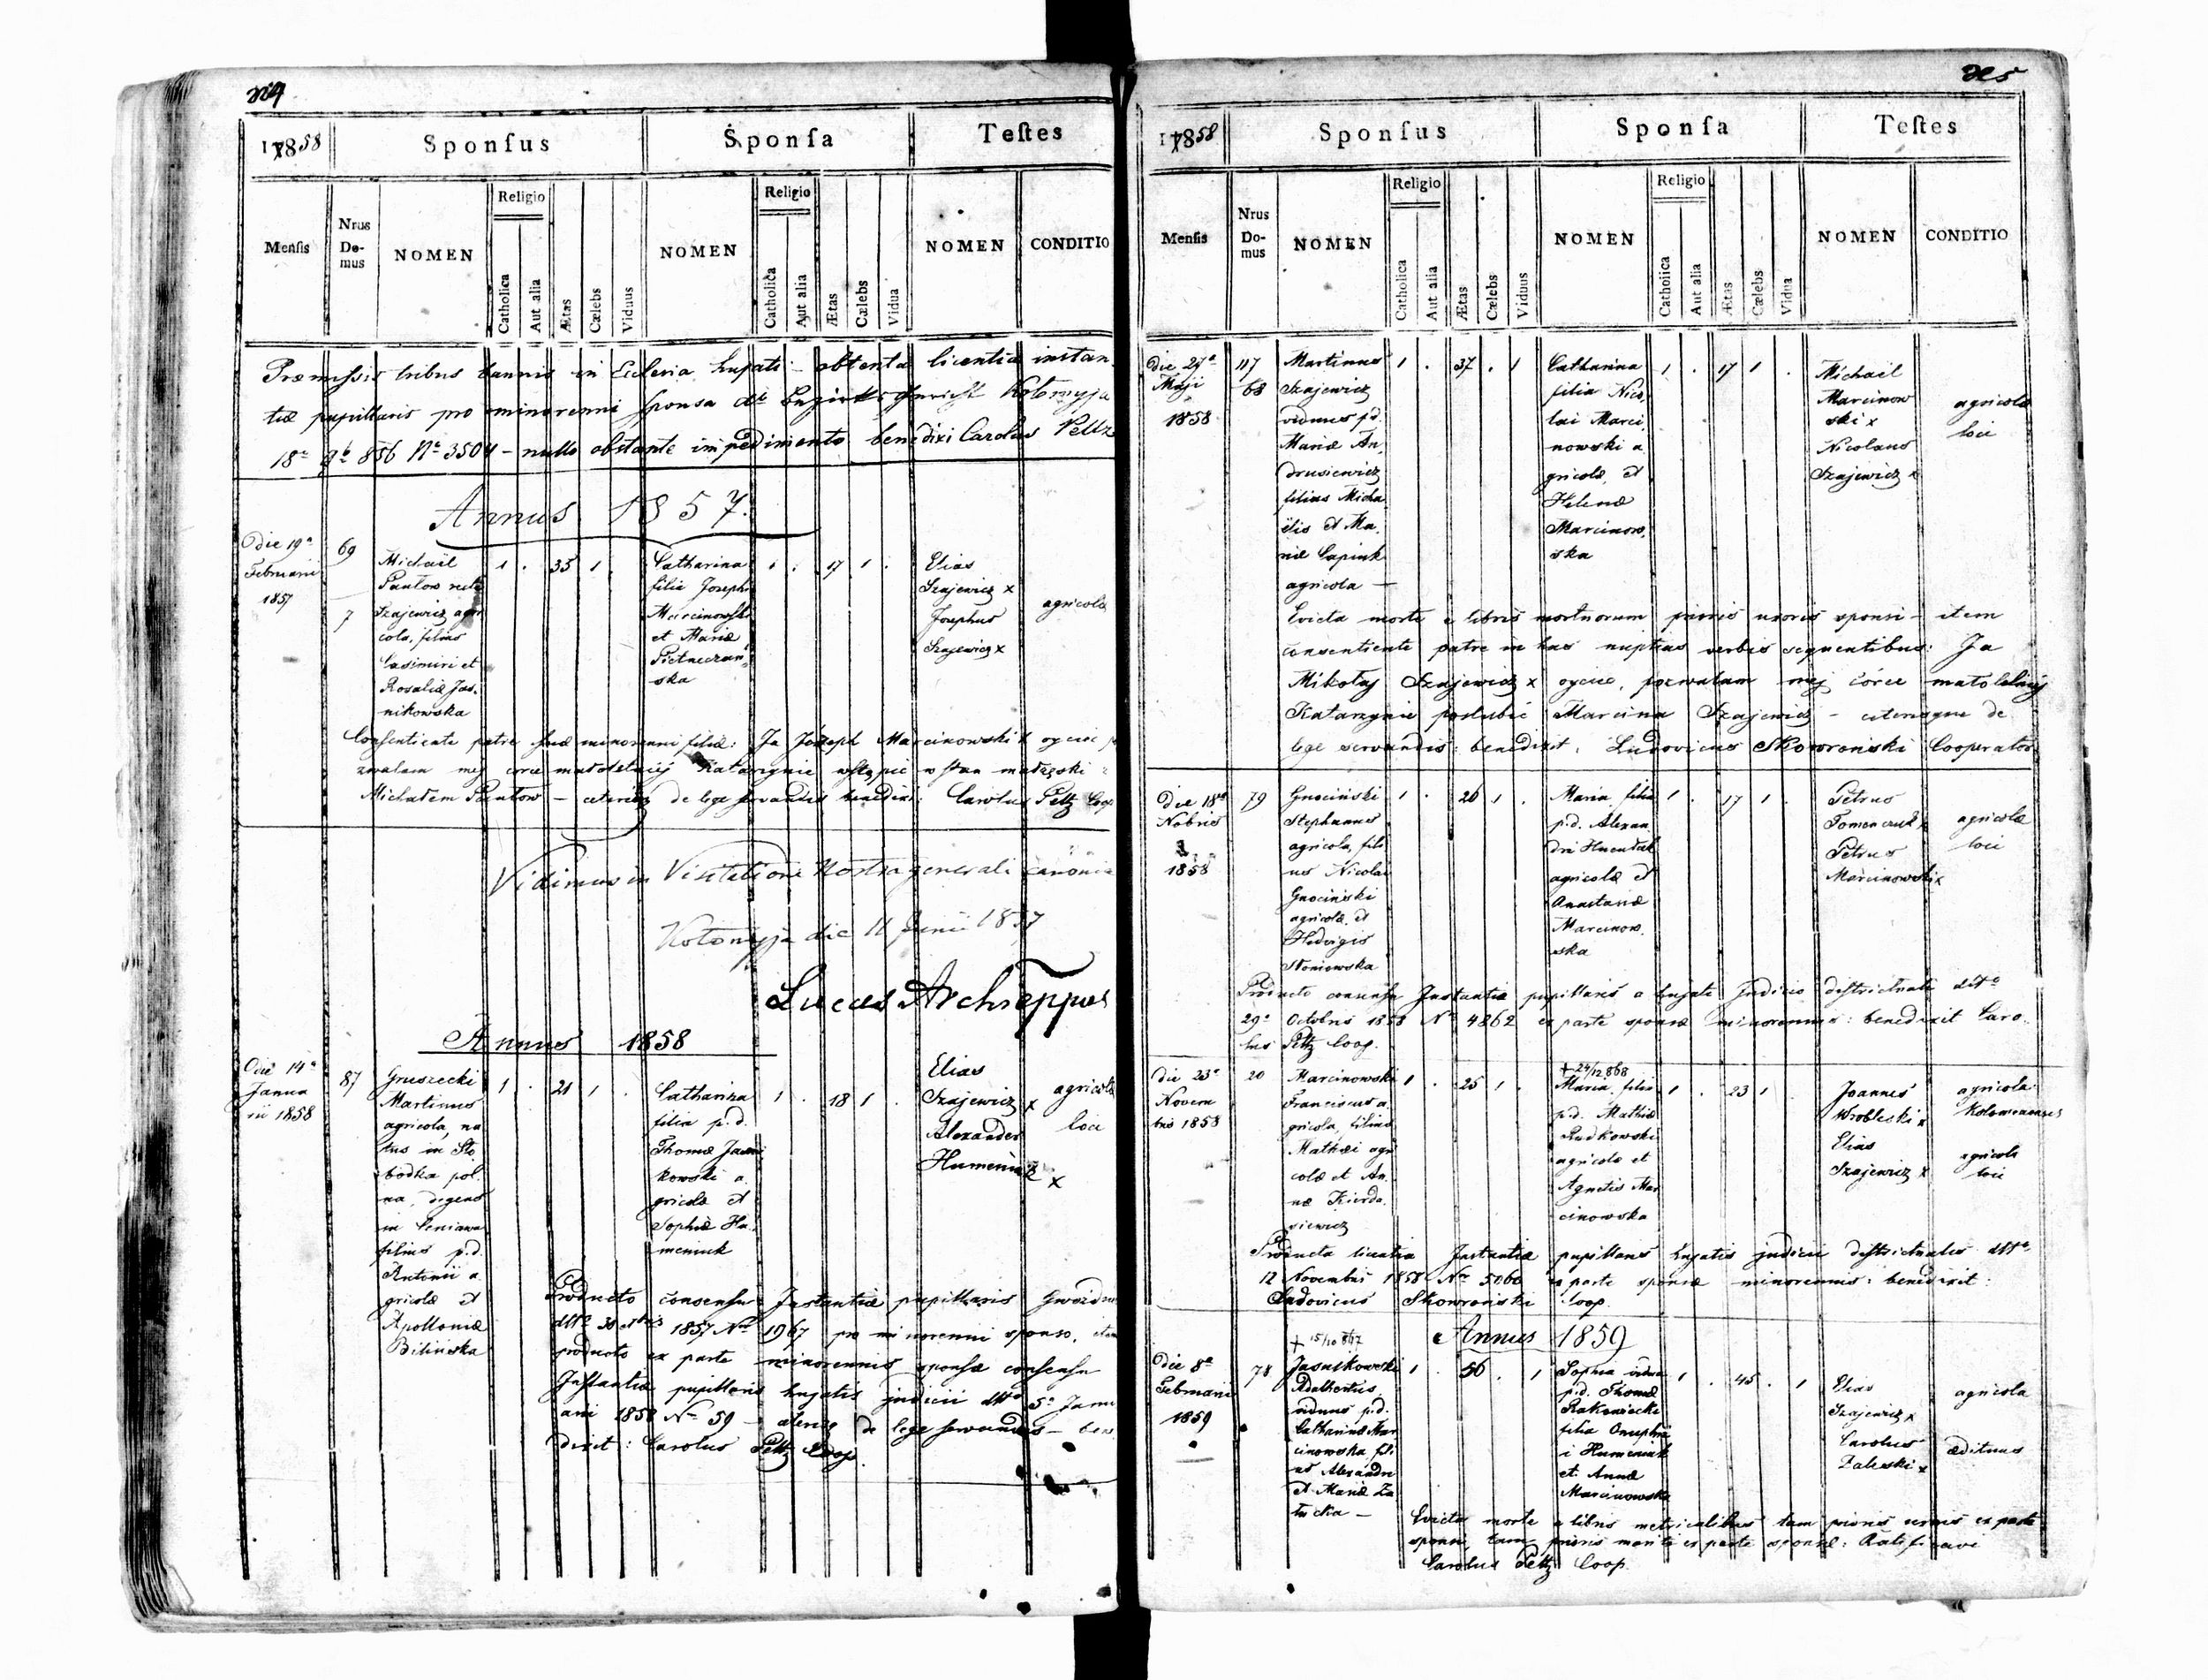 1858
Sponsus
Sponsa
Testes
Mensis
Nrus Domus
NOMEN
Religio
Catholica
Aut alia
Ætas
Cœlebs
Viduus
NOMEN
Religio
Catholica
Aut alia
Ætas
Cœlebs
Vidua
NOMEN
CONDITIO
Præmissis tribus bannis in Ecclesia hujati – obtenta licentia instan
tiæ pupillaris pro minorenni sponsa
18ª 856 Nº 3504 – nullo obstante impedimento benedixi Carolus Peltz
Annus 1857.
Die 19ª
Februarii
1857
69
7
Michaël
Pantow recte
Szajewicz agri
cola, filius
Casimiri et
Rosaliæ Jas
nikowska
1 . 35 1 .
Catharina
filia Josephi
Marcinowski
et Mariæ
ska
1 . 17 1 .
Elias
Szajewicz x
Josephus
Szajewicz x
agricolæ
Consentiente patre suæ minorenni filiæ: Ja Józeph Marcinowski x oyciec
zwalam mej córce małoletniej Katarzynie wstąpic w stan małżeski z
Michałem Pantow – de lege servandis benedixi: Carolus Peltz Coop.
Vidimus in Visitatione Nostra generali canonica
Kołomyja die 11 Junii 1857
Lucas Archieppus
Annus 1858
Die 14ª
Janua
rii 1858
87
Gruszecki
Martinus
agricola, na
tus in Sło
bodka pol
na, degens
in
filius p.d.
Antonii a
gricolæ et
Apolloniæ
Bilinska
1 . 21 1 .
Catharina
filia p.d.
Thomæ Jasni
kowski a
gricolæ et
Sophiæ Hu
meniuk
1 . 18 1 .
Elias
Szajewicz x
Alexander
Humeniuk x
agricolæ
loci
Producto consensu Instantiæ pupillaris
ddto 30 1857 Nº 1967 pro minorenni sponso,
producto ex parte minorennis sponsæ consensu
Instantiæ pupillaris hujatis judicii ddto 5ª Janu
arii 1858 Nº 59 – de lege servandis – bene
dixit: Carolus Peltz Coop.
1858
Sponsus
Sponsa
Testes
Mensis
Nrus Domus
NOMEN
Religio
Catholica
Aut alia
Ætas
Cœlebs
Viduus
NOMEN
Religio
Catholica
Aut alia
Ætas
Cœlebs
Vidua
NOMEN
CONDITIO
Die 27ª
Maji
1858
117
68
Martinus
Szajewicz
viduus p.d.
Mariæ An
drusiewicz
filius Micha
ëlis et Ma
riæ Capiuk
agricola –
1 . 37 . 1
Catharina
filia Nico
lai Marci
nowski a
gricolæ, et
Helenæ
Marcinow
ska
1 . 17 1 .
Michaël
Marcinow
ski x
Nicolaus
Szajewicz x
agricolæ
loci
Evicta morte e libris mortuorum prioris uxoris sponsi – item
consentiente patre in has nuptias verbis sequentibus: Ja
Mikołaj Szajewicz x oyciec, pozwalam mej córce małoletniej
Katarzynie poslubić Marcina Szajewicz – de
lege servandis: benedixit: Ludovicus Skowroński Cooperator
Die 18ª
Nobris
1858
79
Gnociński
Stephanus
agricola, fili
us Nicolai
Gnociński
agricolæ et
Hedvigis
Słoniowska
1 . 26 1 .
Maria filia
p.d. Alexan
dri
agricolæ et
Anastasiæ
Marcinow
ska
1 . 17 1 .
Petrus
Tomenczuk x
Petrus
Marcinowski x
agricolæ
loci
Producto consensu Instantiæ pupillaris a hujate Judicio districtuali ddto
29ª Octobris 1858 Nº 4862 ex parte sponsæ minorennis: benedixit Caro
lus Peltz Coop.
Die 23ª
Novem
bris 1858
20
Marcinowski
Franciscus a
gricola, filius
Mathæi agri
colæ et An
næ Kierda
siewicz
1 . 25 1 .
+ 24/12 868
Maria filia
p.d. Mathiæ
Rudkowski
agricolæ et
Agnetis Mar
cinowska
1 . 23 1
Joannes
Wrobleski x
Elias
Szajewicz x
agricola
Kolomeaensis
agricola
loci
Producta licentia Instantiæ pupillaris hujatis judicii districtualis ddto
12 Novembris 1858 Nº 5060 ex parte sponsæ minorennis: benedixit:
Ludovicus Skowroński Coop.
Annus 1859
Die 8ª
Februarii
1859
78
+ 15/10 867
Adalbertus
viduus p.d.
Catharinæ Mar
cinowska fili
us Alexandri
et Mariæ Za
łucka –
1 . 56 . 1
Sophia vidua
p.d. Thomæ
Rakowiecki
filia Onuphri
i Humeniuk
et Annæ
Marcinowska
1 . 45 . 1
Elias
Szajewicz x
Carolus
Zaleski x
agricola
ædituus
Evicta morte e libris metricalibus tam prioris uxoris ex parte
sponsi, tam prioris mariti ex parte sponsæ: Ratificavi
Carolus Peltz Coop.